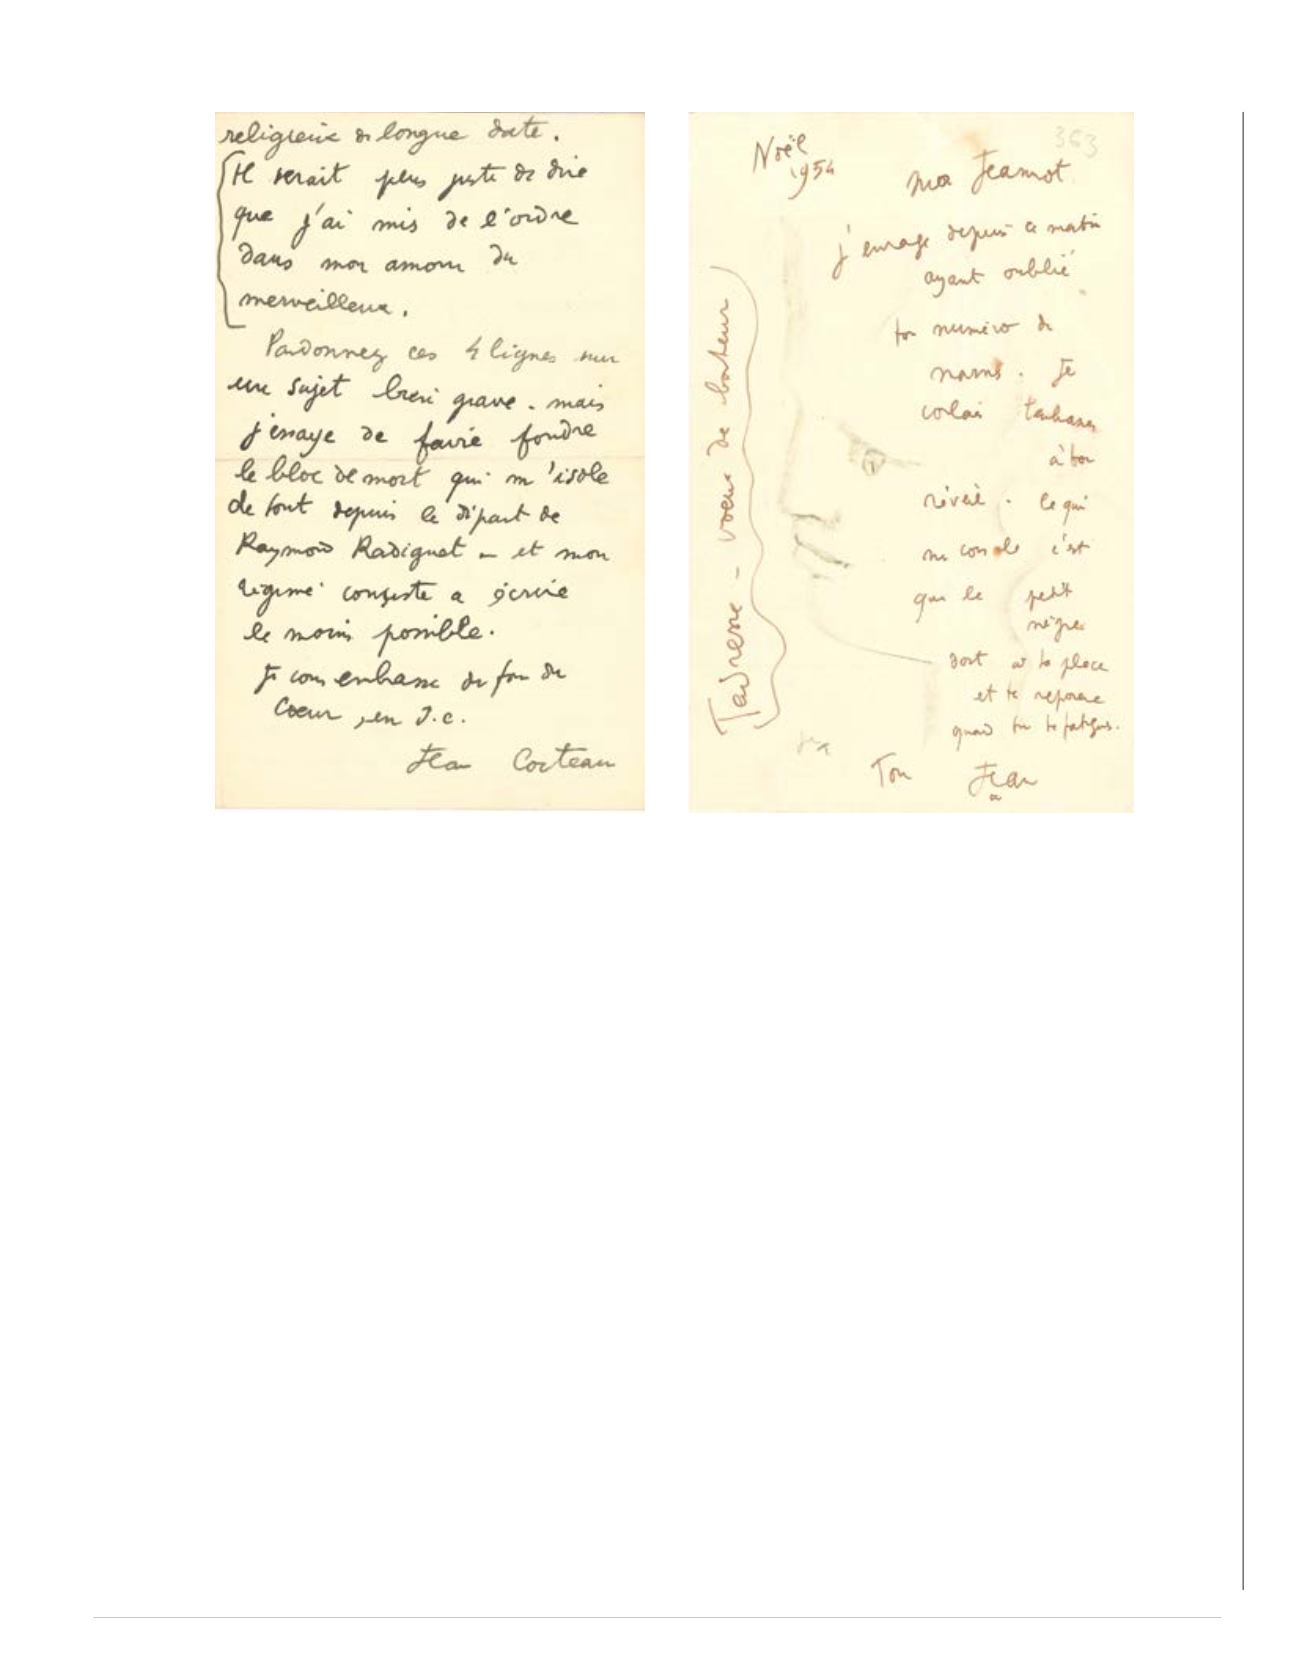 religieuse de longue date.
Il serait plus juste de dire
que j'ai mis de l'ordre
dans mon amour du
merveilleux.
Pardonnez ces 4 lignes sur
un sujet bien grave. mais
j'essaye de faire fondre
le bloc de mort qui m'isole
de tout depuis le départ de
Raymond Radiguet — et mon
régime consiste a écrire
le moins possible.
Je vous embrasse du fond du
Coeur, en J.C.
Jean Cocteau
363
Noël
1954
Mon Jeannot
j'enrage depuis ce matin
ayant oublié
ton numéro de
Je
voulais t'embrasser
à ton
réveil. Ce qui
me console c'est
que le petit
nègre
dort à ta place
et te repose
quand tu te fatigues.
Ton Jean
Tendresse - voeux de bonheur